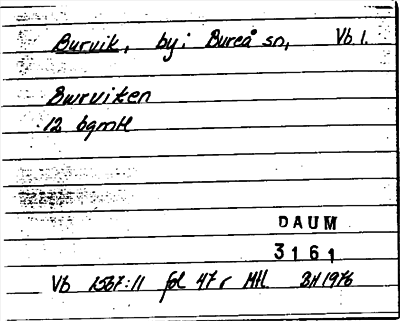 Burvik, by i Bureå sn, Vb. l.
Bwrviken
12 bgmtl
DAUM
3161
Vb 1567:11 fol 47 r Mtl BH 1976